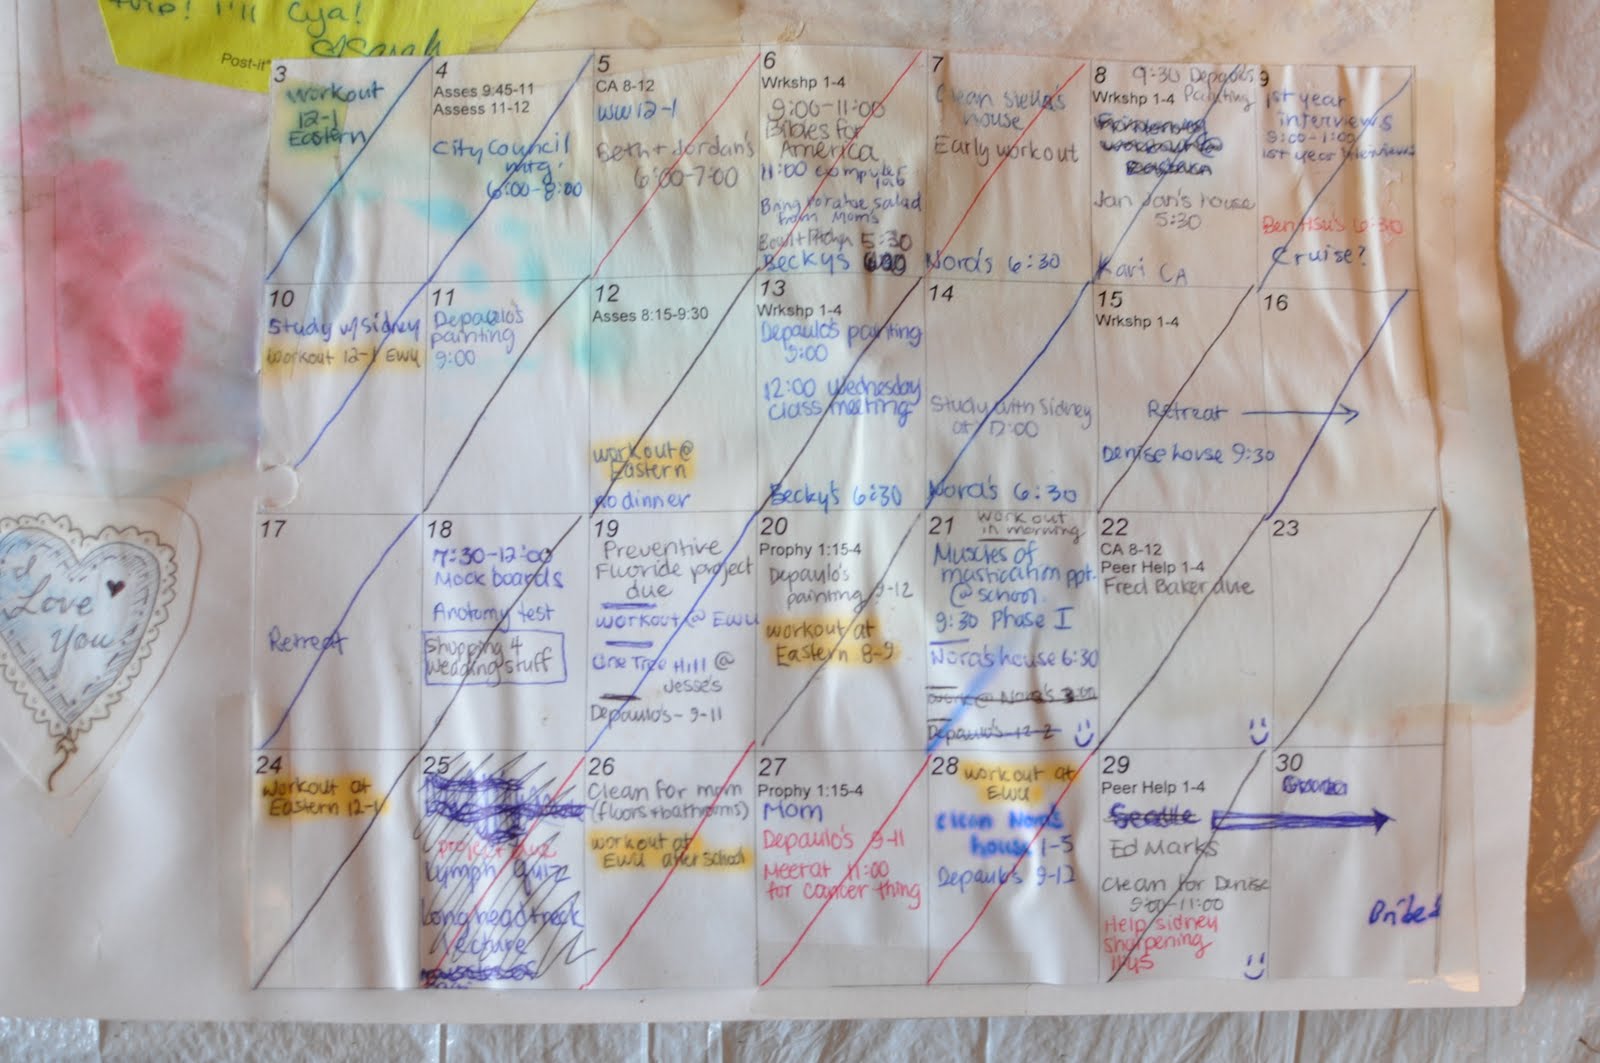 I'll Cya!
Sarah
Post-it
I
Love
You
3
Workout
12-1
Eastern
4
Asses 9:45-11
Assess 11-12
City Council
mtg.
6:00-8:00
5
CA 8-12
WW 12-1
Beth + Jordan's
6:00-7:00
6
Wrkshp 1-4
9:00-11:00
Bibles for
America
11:00 computer
lab
Bring potatoe salad
from Mom's
Bowl + Pitcher 5:30
Becky's
7
Clean Stella's
house
Early workout
Nora's 6:30
8
9:30 Depaulo's
Wrkshp 1-4 Painting
Jan Jan's house
5:30
Kari CA
9
1st year
interviews
9:00-1:00
1st year interviews
Ben Hsu's 6:30
Cruise?
10
Study w/ Sidney
Workout 12-1 EWU
11
Depaulo's
painting
9:00
12
Asses 8:15-9:30
workout @
Eastern
no dinner
13
Wrkshp 1-4
Depaulo's painting
9:00
12:00 Wednesday
class meeting
Becky's 6:30
14
Study with Sidney
at 12:00
Nora's 6:30
15
Wrkshp 1-4
Retreat
Denise house 9:30
16
17
Retreat
18
7:30-12:00
Mock boards
Anatomy test
Shopping 4
wedding stuff
19
Preventive
Fluoride project
due
workout @ EWU
One Tree Hill @
Jesse's
Depaulo's - 9-11
20
Prophy 1:15-4
Depaulo's
painting 9-12
workout at
Eastern 8-9
21
work out
in morning
Muscles of
mastication ppt.
@ school
9:30 Phase I
Nora's house 6:30
work @ Nora's 3:00
Depaulo's 12-2
22
CA 8-12
Peer Help 1-4
Fred Baker due
23
24
Workout at
Eastern 12-1
25
project quiz
Lymph quiz
Long head + neck
lecture
26
Clean for mom
(floors + bathrooms)
workout at
EWU after school
27
Prophy 1:15-4
Mom
Depaulo's 9-11
Meet at 11:00
for cancer thing
28
workout at
EWU
clean Nora's
house 1-5
Depaulo's 9-12
29
Peer Help 1-4
Seattle
Ed Marks
Clean for Denise
9:00-11:00
Help sidney
sharpening
11:45
30